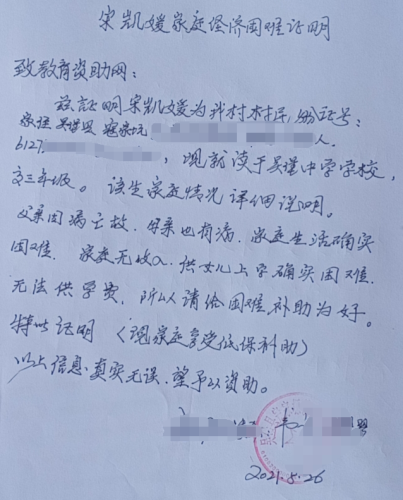 宋凯媛家庭经济困难证明
致教育资助网:
兹证明宋凯媛为我村村民,份证号:
家住吴堡县寇家塬 人.
6127 ,现就读于吴堡中学学校,
高三年级。该生家庭情况详细说明。
父亲因病亡故、母亲也有病,家庭生活确实
困难. 家庭无收入.供女儿上学确实困难.
无法供学费,所以请给困难补助为好。
特此证明 (现家庭享受低保补助)
以上信息真实无误.望予以资助。
2021.5.26